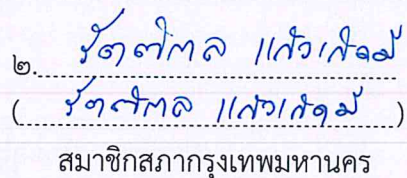 ๒. รัตติกาล แก้วเกิดมี
( รัตติกาล แก้วเกิดมี )
สมาชิกสภากรุงเทพมหานคร